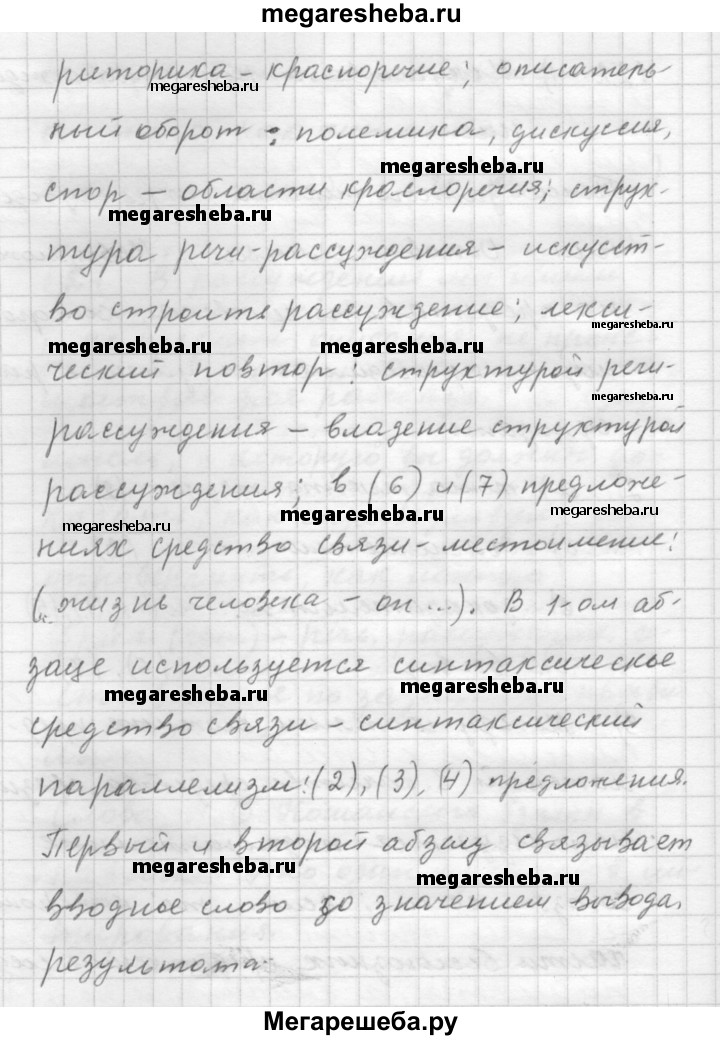 megaresheba.ru
риторика – красноречие; описатель-
megaresheba.ru
ный оборот: полемика, дискуссия,
megaresheba.ru
спор – области красноречия; струк-
megaresheba.ru
тура речи-рассуждения – искусст-
во строить рассуждение; лекси-
megaresheba.ru
megaresheba.ru megaresheba.ru
ческий повтор: структурой речи-
рассуждения – владение структурой
рассуждения; в (6) и (7) предложе-
megaresheba.ru megaresheba.ru megaresheba.ru
ниях средство связи – местоимение:
(жизнь человека – он ...). В 1-ом аб-
заце используется синтаксическое
megaresheba.ru megaresheba.ru
средство связи – синтаксический
параллелизм: (2), (3), (4) предложения.
Первый и второй абзац связывает
megaresheba.ru megaresheba.ru
вводное слово со значением вывода,
результата.
Мегарешеба.ру